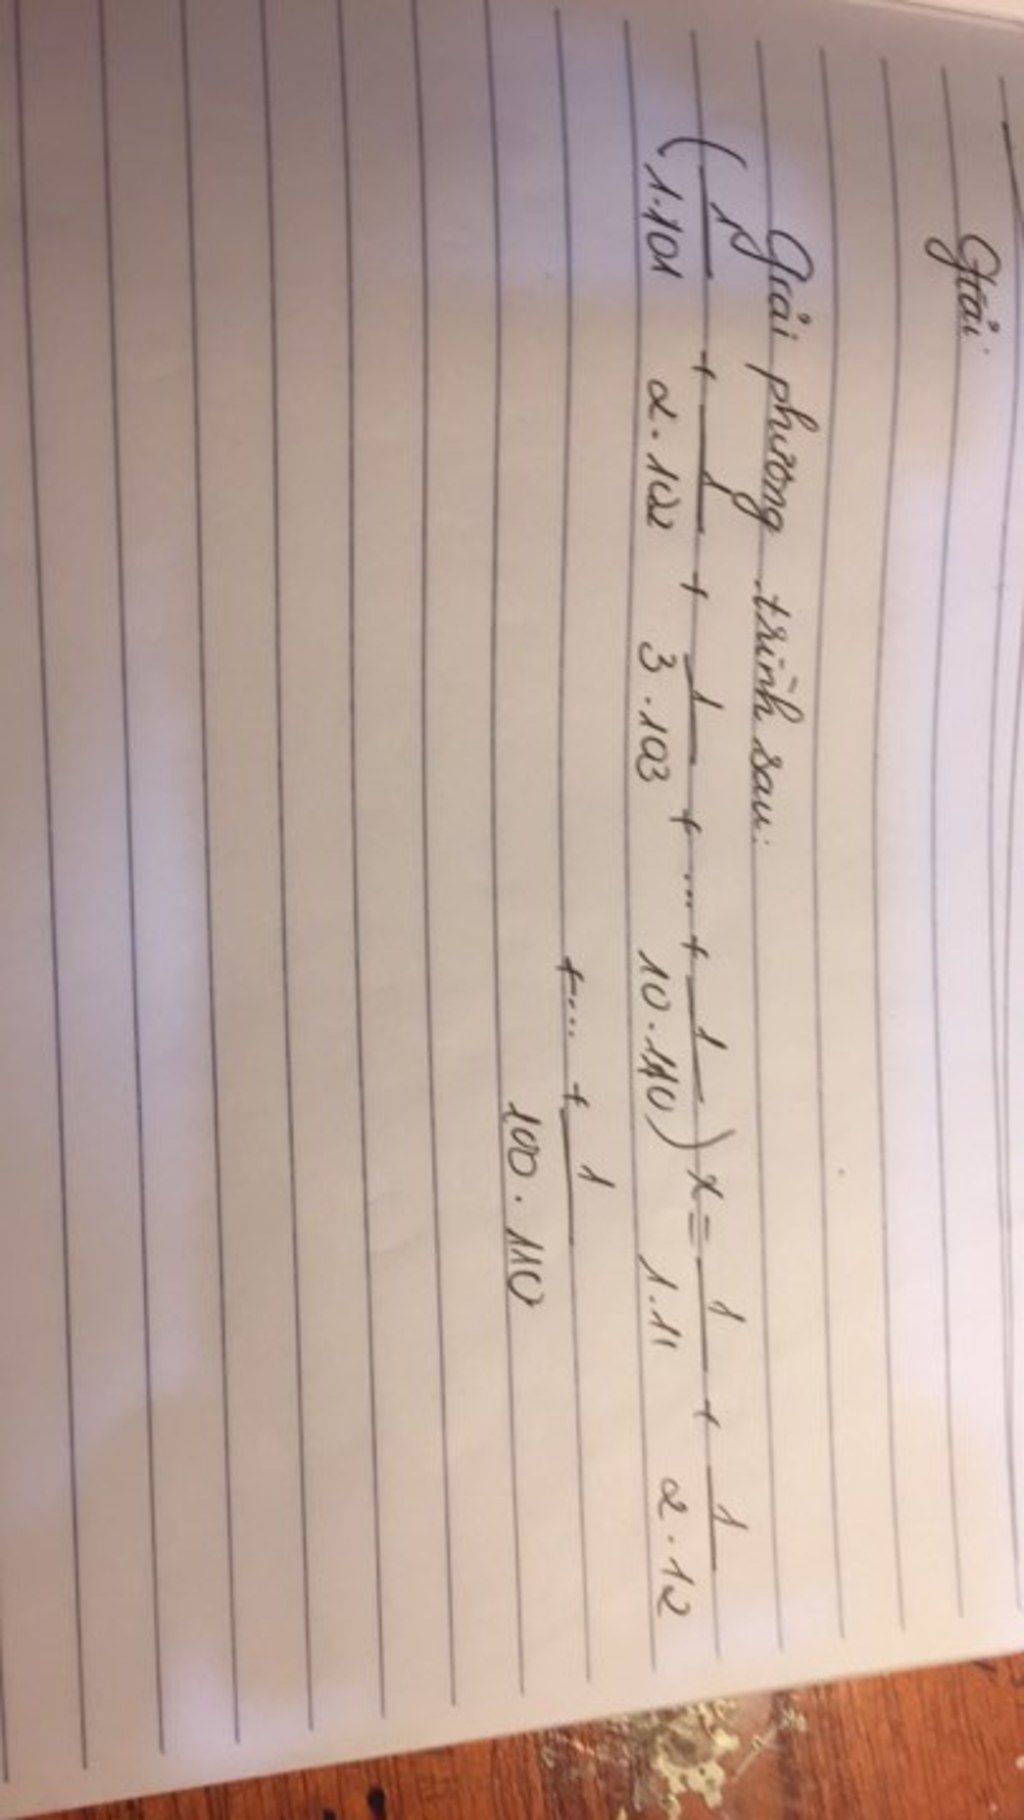 Giải phương trình sau:
(1/1.101 + 1/2.102 + 1/3.103 + ... + 1/10.110) x = 1/1.11 + 1/2.12
+ ... + 1/100.110
Giải: